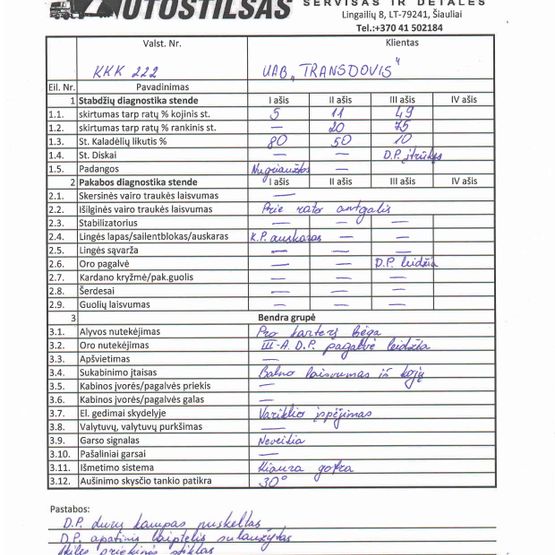 AUTOSTILSAS SERVISAS IR DETALĖS
Lingailių 8, LT-79241, Šiauliai
Tel.:+370 41 502184
Valst. Nr. Klientas
KKK 222 UAB „TRANSDOVIS“
Eil. Nr. Pavadinimas
1 Stabdžių diagnostika stende I ašis II ašis III ašis IV ašis
1.1. skirtumas tarp ratų % kojinis st. 5 11 49
1.2. skirtumas tarp ratų % rankinis st. — 20 75
1.3. St. Kaladėlių likutis % 80 50 10
1.4. St. Diskai — — D.P. įtrūkęs
1.5. Padangos Nugriaužtos — —
2 Pakabos diagnostika stende I ašis II ašis III ašis IV ašis
2.1. Skersinės vairo traukės laisvumas —
2.2. Išilginės vairo traukės laisvumas Prie rato antgalis
2.3. Stabilizatorius — — —
2.4. Lingės lapas/sailentblokas/auskaras K.P. auskaras — —
2.5. Lingės sąvarža — — —
2.6. Oro pagalvė — — D.P. leidžia
2.7. Kardano kryžmė/pak.guolis — — —
2.8. Šerdesai — — —
2.9. Guolių laisvumas — — —
3 Bendra grupė
3.1. Alyvos nutekėjimas Pro karterį bėga
3.2. Oro nutekėjimas III-A. D.P. pagalvė leidžia
3.3. Apšvietimas —
3.4. Sukabinimo įtaisas Balno laisvumas iš kojų
3.5. Kabinos įvorės/pagalvės priekis —
3.6. Kabinos įvorės/pagalvės galas —
3.7. El. gedimai skydelyje Variklio įspėjimas
3.8. Valytuvų, valytuvų purkšimas —
3.9. Garso signalas Neveikia
3.10. Pašaliniai garsai —
3.11. Išmetimo sistema Kiaura gofra
3.12. Aušinimo skysčio tankio patikra 30°
Pastabos:
D.P. durų kampas nuskeltas
D.P. apatinis laiptelis sulaužytas
priekinės stiklas